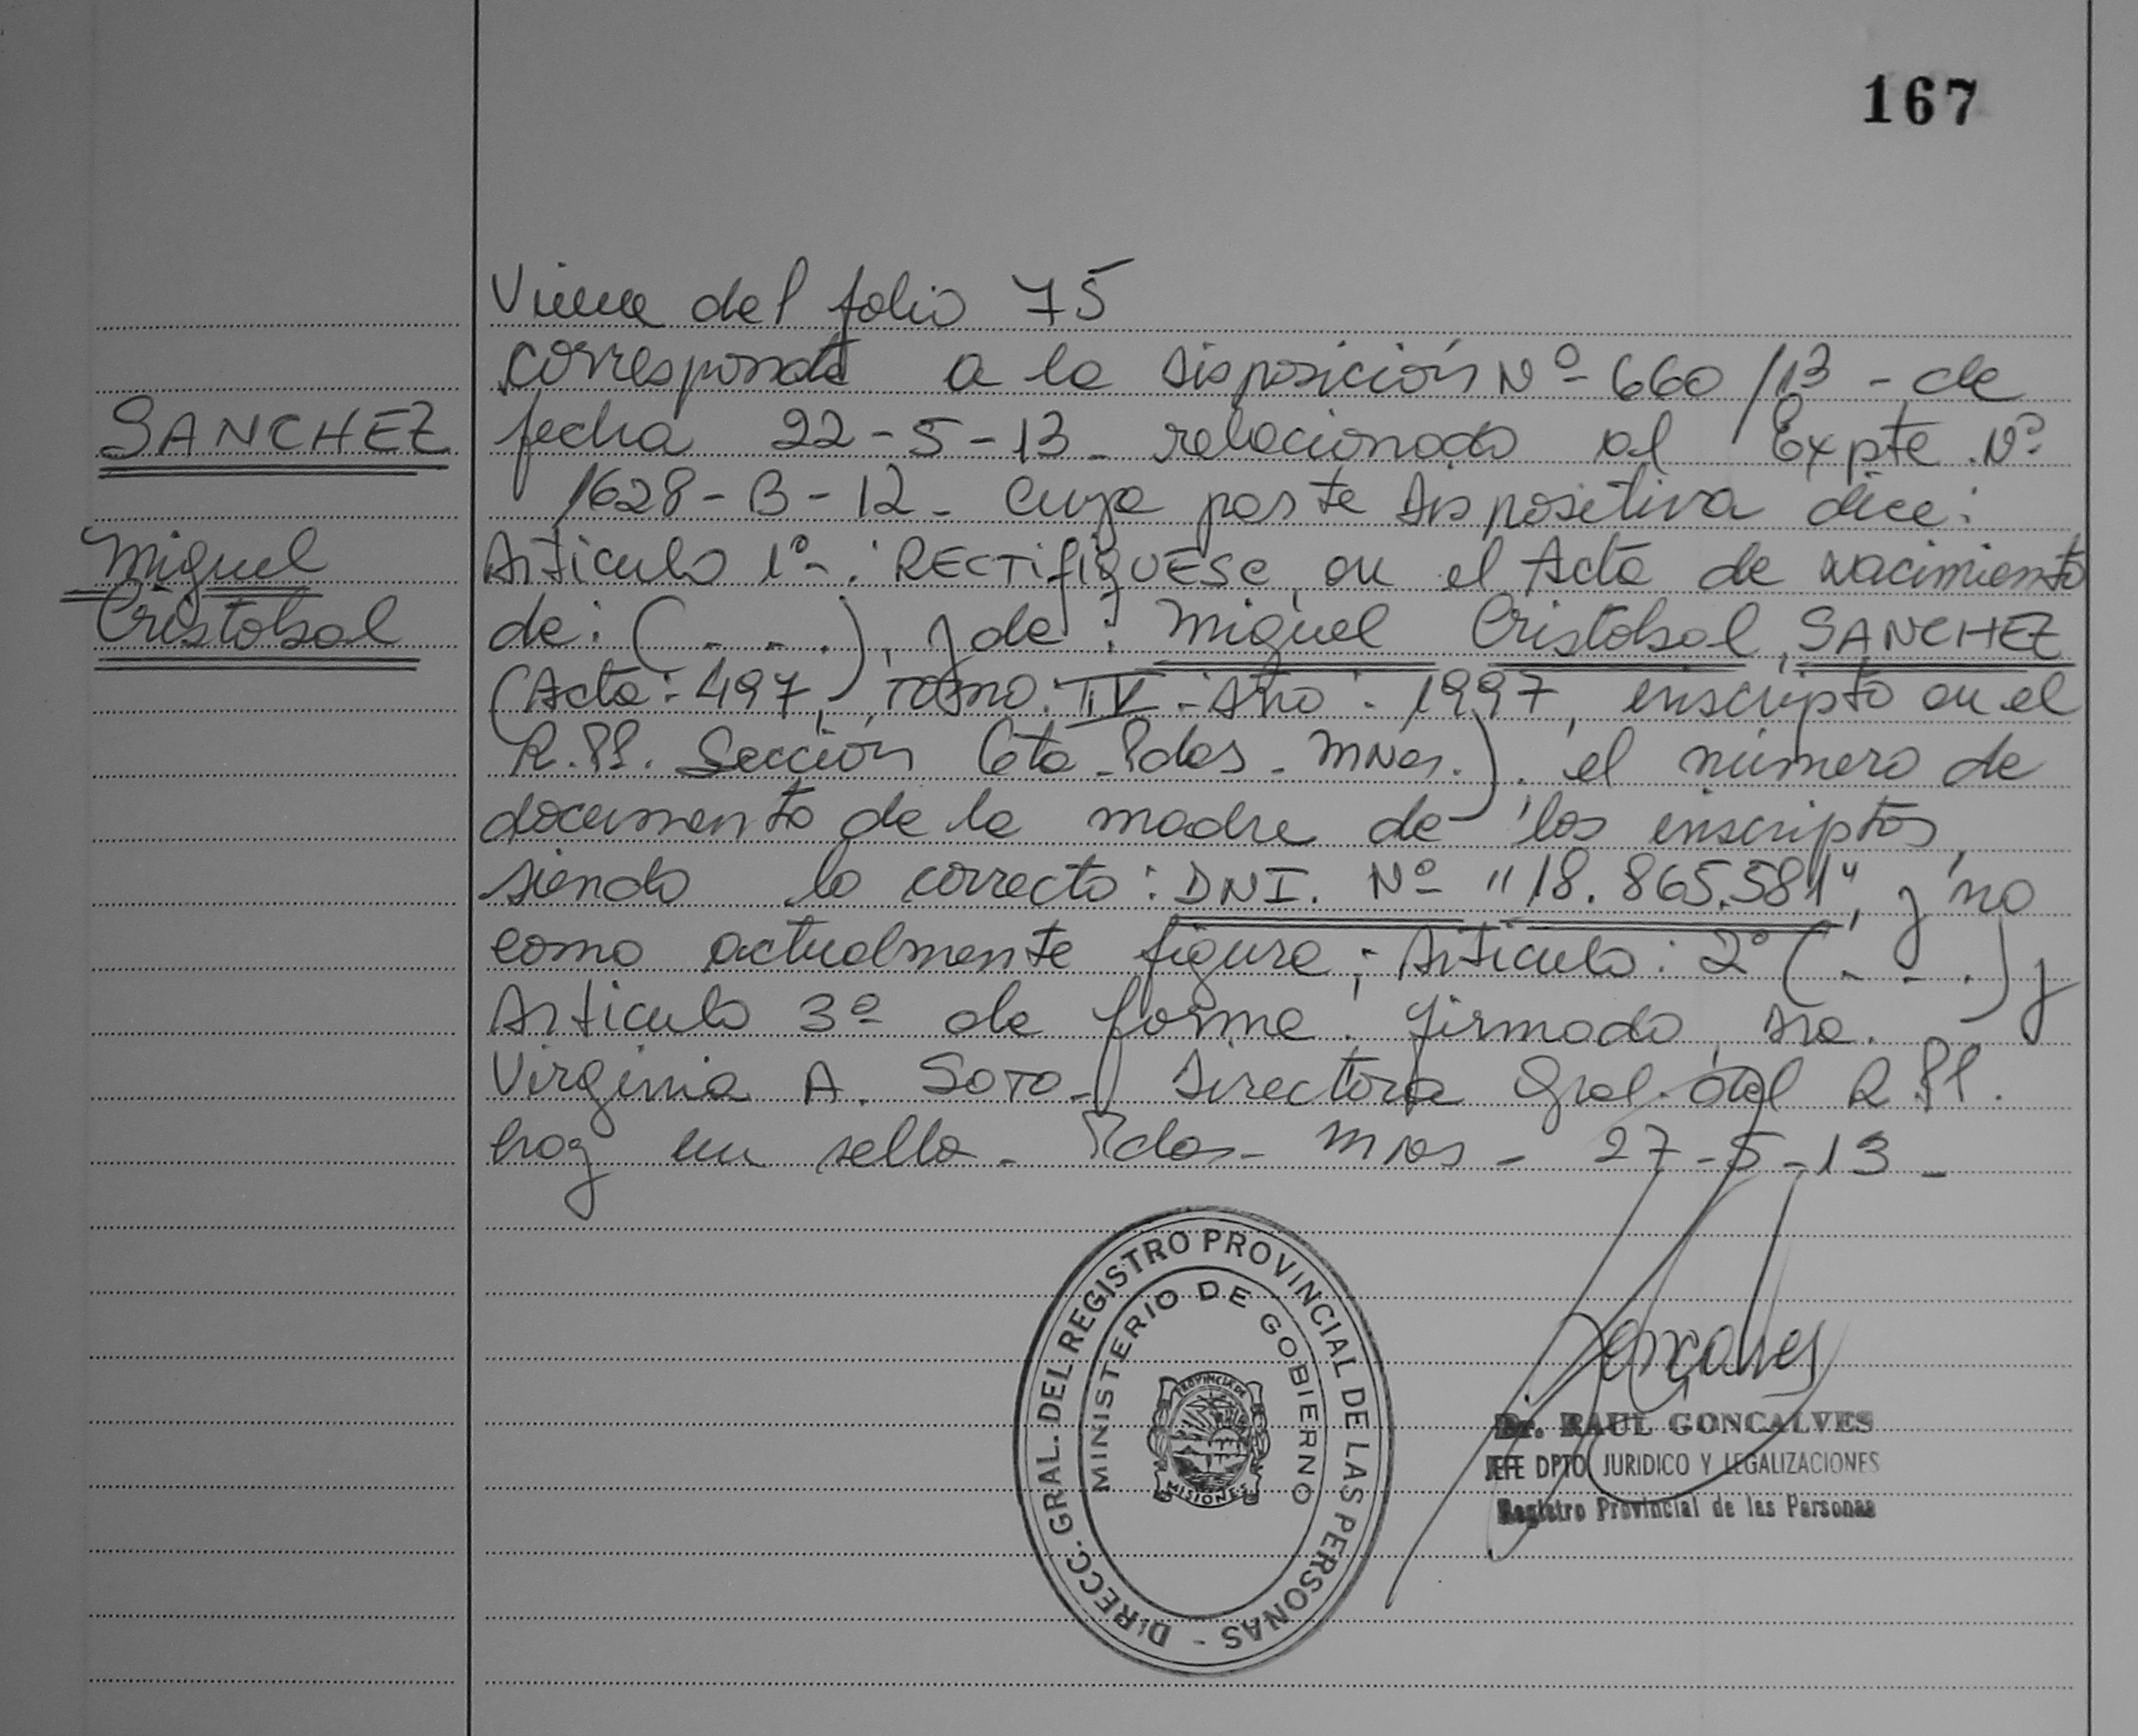 167
Viene del folio 75
corresponde a la disposición Nº 660/13 - de
SANCHEZ
fecha 22-5-13- relacionado al Expte Nº
1628-B-12- cuya parte dispositiva dice:
Miguel
Cristobal
Articulo 1º-: RECTIFIQUESE, en el Acta de nacimiento
de: (- - -), y de: Miguel Cristobal, SANCHEZ
(Acta: 497, Tomo: IV - Año: 1997, inscripto en el
R.PP. Sección 6ta Pdas - MNes.). el número de
documento de la madre de los inscriptos,
siendo lo correcto: DNI. Nº "18.865.581", y no
como actualmente figura; Articulo: 2º (- - -) y
Articulo 3º de forma. firmado, sra.
Virginia A. Soto- Directora Gral. del R.PP.
hay un sello- Pdas- Mnes - 27-5-13-
DIRECC. GRAL. DEL REGISTRO PROVINCIAL DE LAS PERSONAS -
MINISTERIO DE GOBIERNO
PROVINCIA DE
MISIONES
Goncalves
Dr. RAUL GONCALVES
JEFE DPTO JURIDICO Y LEGALIZACIONES
Registro Provincial de las Personas